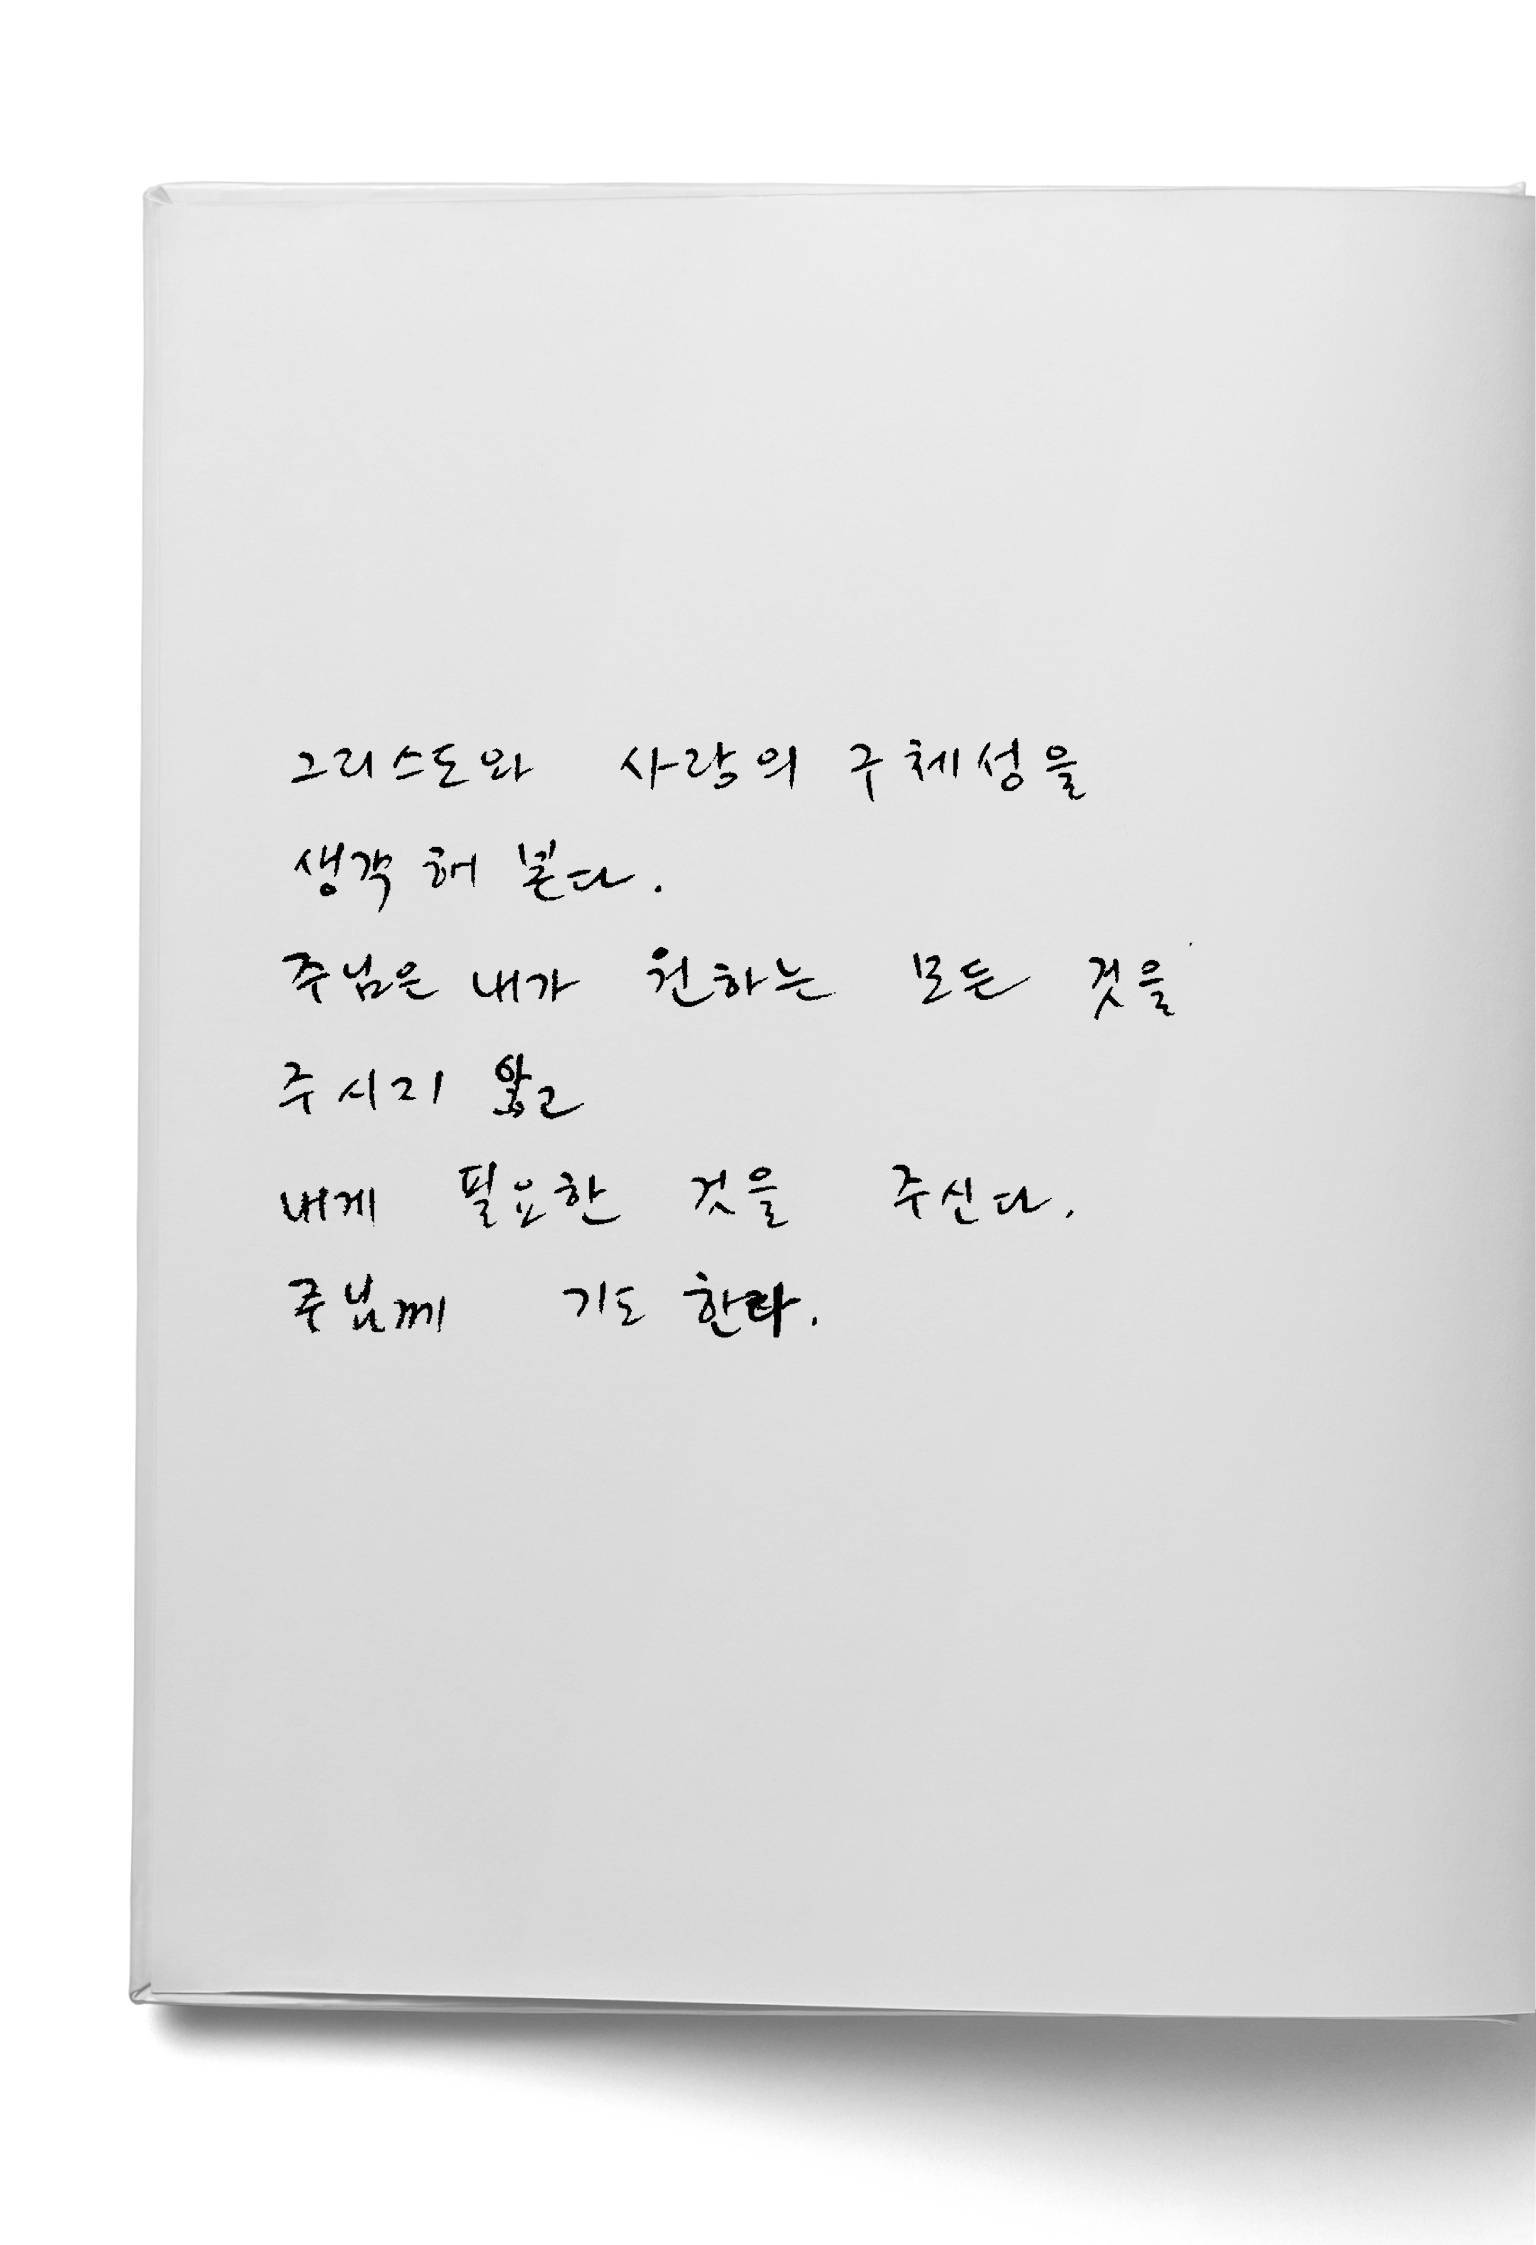 그리스도와 사랑의 구체성을
생각해 본다.
주님은 내가 원하는 모든 것을
주시지 않고
내게 필요한 것을 주신다.
주님께 기도한다.